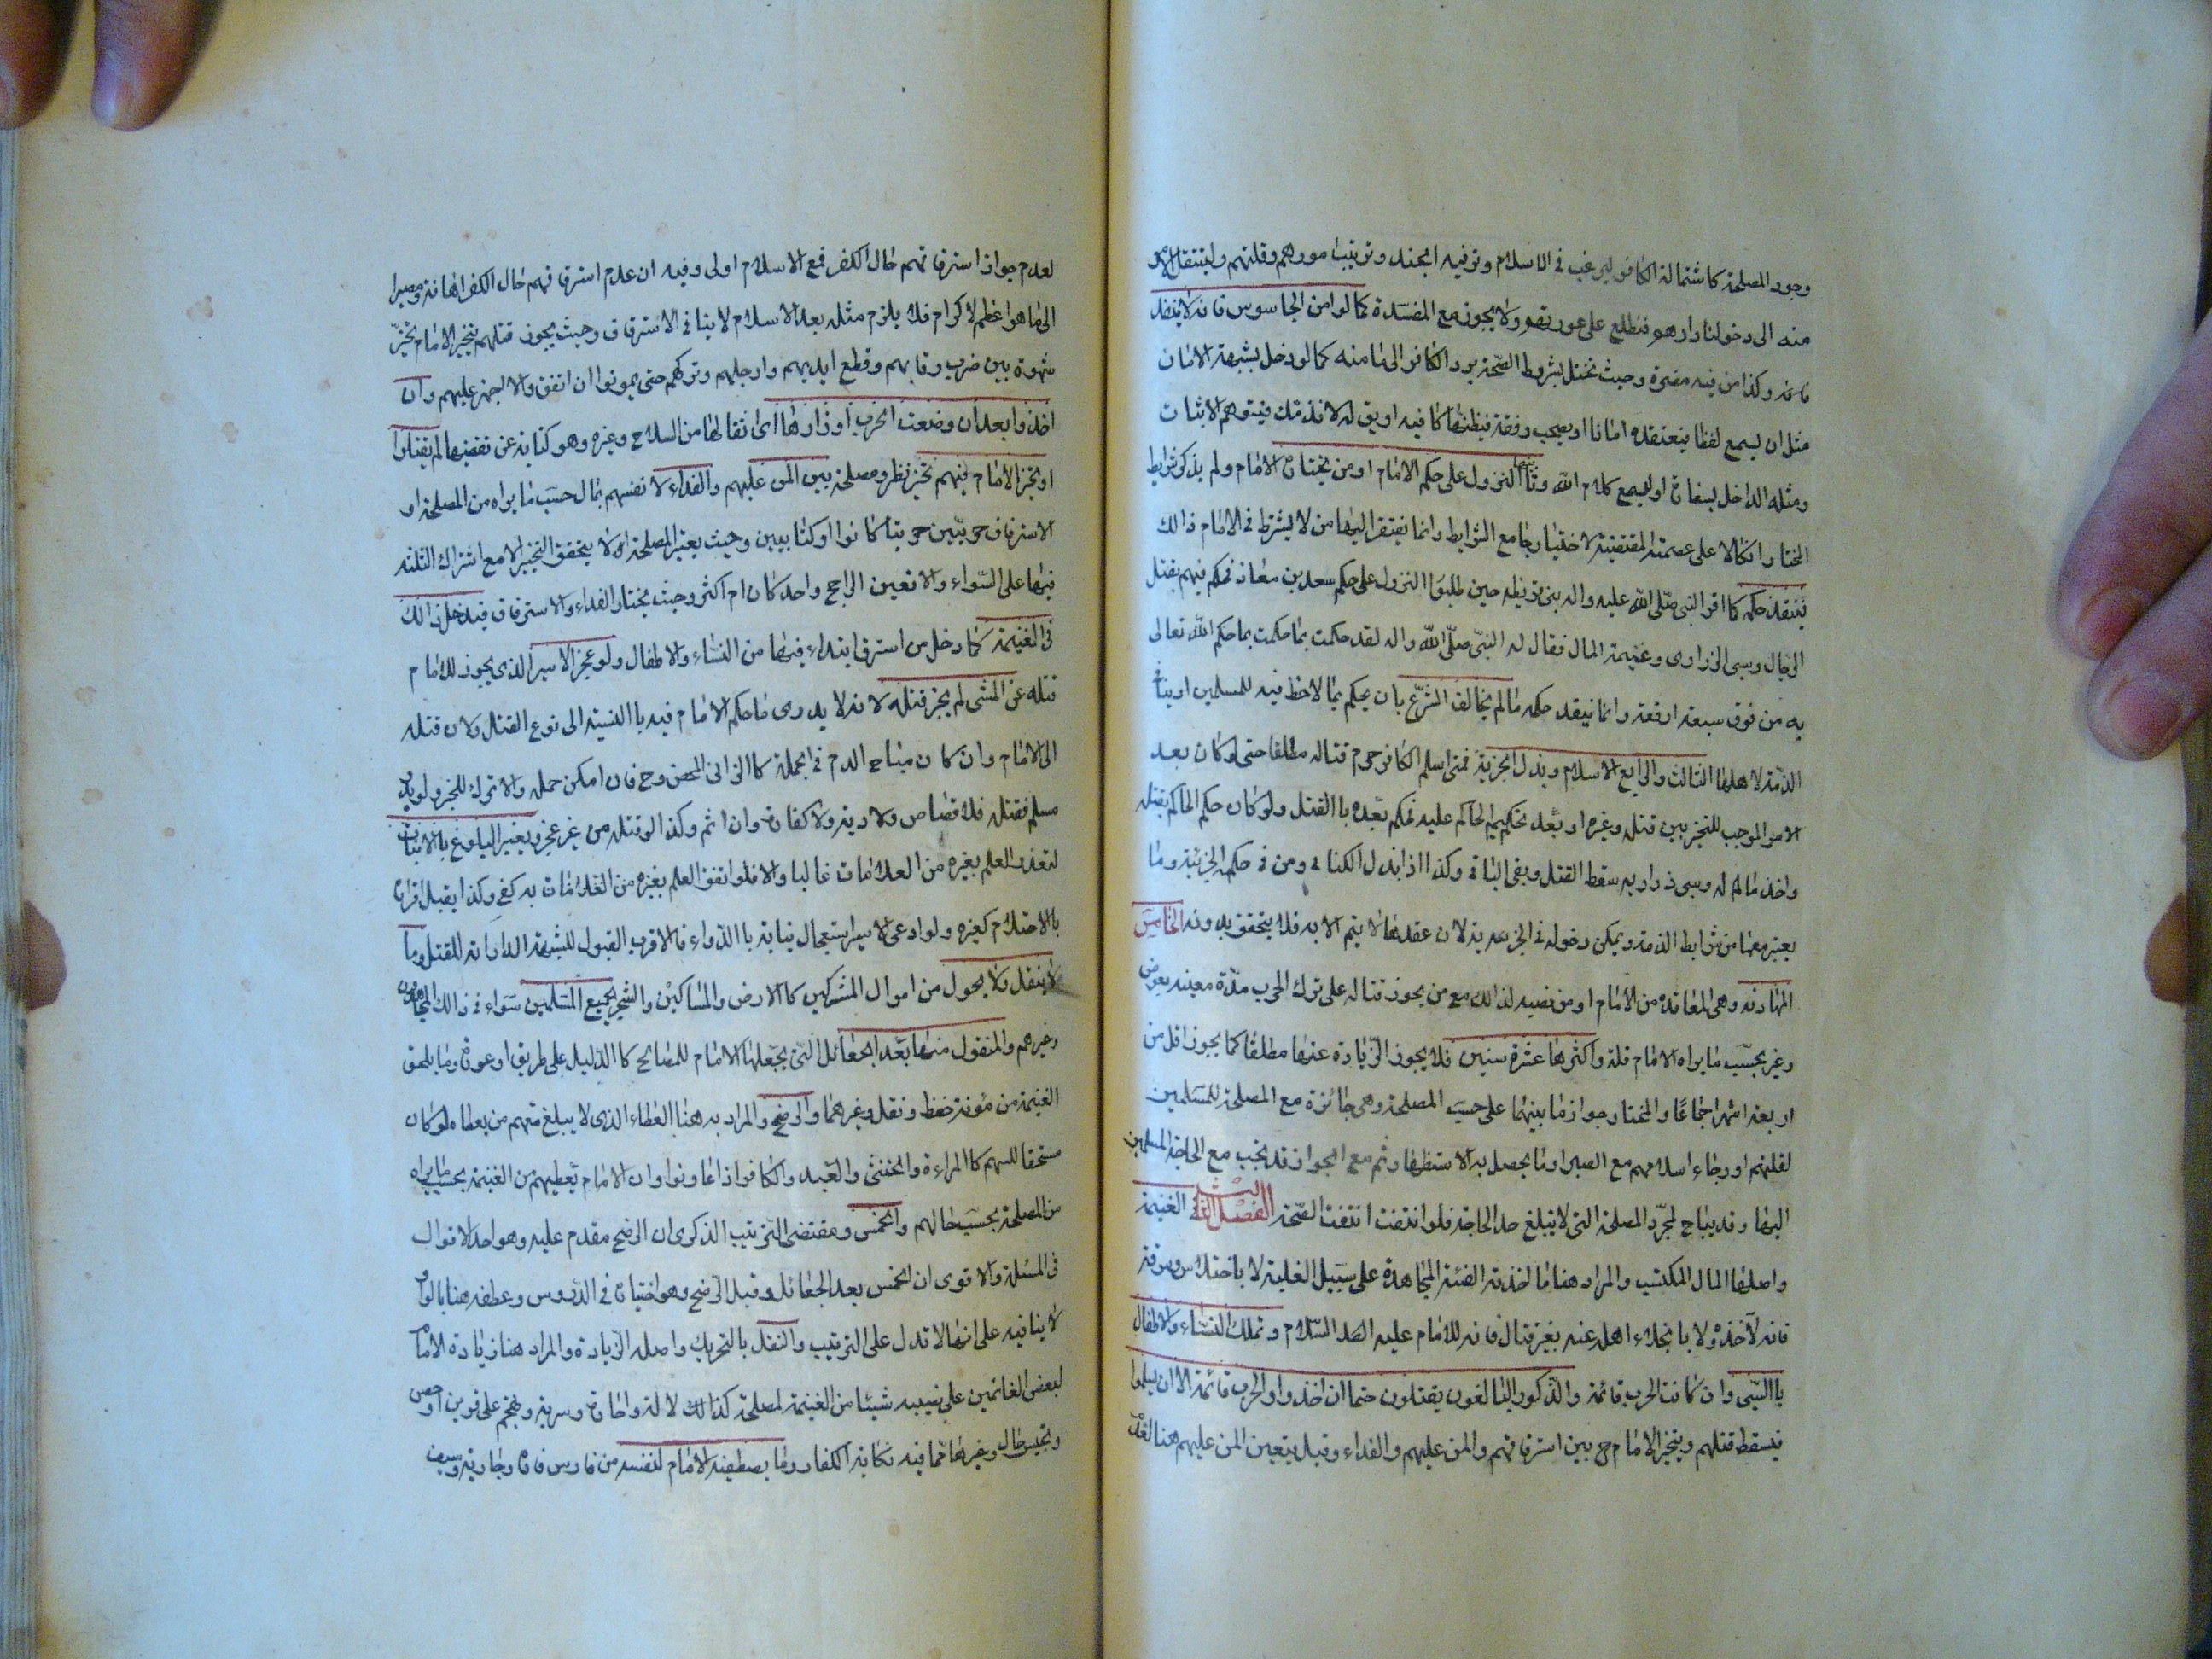 وجود المصلحة كاشتمالة الكافر ليرغب فى الاسلام وترفيه الجند وترتيب امورهم وقلتهم ولينتقل الامر
منه الى دخولنا دارهم فنطلع على عوراتهم ولا يجوز مع المفسدة كما لو امن الجاسوس فانه لا ينفذ
امانه وكذا من فيه مضرة وحيث تختل شروط الصّحة يرد الكافر الى مامنه كما لو دخل بشبهة الامان
مثل ان يسمع لفظا يعتقده امانا او يصحب رفقة فيظنها كافيه او يق له لا نذمّك فيتوهم الاثبات
ومثله الداخل بسفارة او ليسمع كلام الله وثالثها النزول على حكم الامام او من يختاره الامام ولم يذكر شرايط
المختار اتكالا على عصمته المقتضية لاختيار جامع الشرايط وانما يفتقر اليها من لا يشترط فى الامام ذالك
فينفذ حكمه كما اقر النبى صلى الله عليه واله بنى قريظه حين طلبوا النزول على حكم سعد بن معاذ فحكم فيهم بقتل
الرجال وسبى الذرارى وغنيمة المال فقال له النبىّ صلّى الله واله لقد حكمت بما حكمت بما حكم الله تعالى
به من فوق سبعة ارقعة وانما ينفد حكمه ما لم يخالف الشرّع بان يحكم بما لا حظ فيه للمسلمين او ينافى
الذمّة لاهلها الثالث والرابع الاسلام وبذل الجزية فمتى اسلم الكافر حرم قتاله مطلقا حتى لو كان بعد
الامر الموجب للتخيير بين قتله وغيره او بعد تحكيم الحاكم عليه فحكم بعده باالقتل ولو كان حكم الحاكم بقتله
واخذ ماله وسبى ذراريه سقط القتل وبقى الباقى وكذا اذا بذل الكتابى ومن فى حكمه الجزية وما
يعتبر معها من شرايط الذمة ويمكن دخوله فى الجزية لان عقدها لا يتم الا به فلا يتحقق بدونه الخامس
المهادنه وهى المعاقده من الامام او من نصبه لذالك مع من يجوز قتاله على ترك الحرب مدّة معينه بعوض
وغير بحسب ما يراه الامام قلة واكثرها عشرة سنين فلا يجوز الزّيادة عنها مطلقا كما يجوز اقل من
اربعة اشهر اجماعًا والمختار جواز ما بينهما على حسب المصلحة وهى جائزة مع المصلحة للمسلمين
لقلتهم او رجاء اسلامهم مع الصبر او ما يحصل به الاستظهار ثم مع الجواز قد تجب مع الحاجة المسلمين
اليها وقد يباح لمجرّد المصلحة التى لا تبلغ حد الحاجة فلو انتفت انتفت الصّحة الفصل الثالث فى الغنيمة
واصلها المال المكتسب والمراد هنا ما اخذته الفئة المجاهدة على سبيل الغلبة لا باختلاس وسرقة
فانه لآخذه ولا بانجلاء اهله عنه بغير قتال فانه للامام عليه السّلام وتملك النسّاء والاطفال
باالسّبى وان كانت الحرب قائمة والذّكور البالغون يقتلون حتما ان اخذوا والحرب قائمة الا ان يسلموا
فيسقط قتلهم ويتخير الامام ح بين استرقاقهم والمن عليهم والفداء وقيل يتعين المن عليهم هنا
لعدم جواز استرقاقهم حال الكفر فمع الاسلام اولى وفيه ان عدم استرقاقهم حال الكفر اهانة ومصيرا
الى ما هو اعظم لاكرام فلا يلزم مثله بعد الاسلام لا ينافى الاسترقاق وحيث يجوز قتلهم يتخير الامام تخيّر
شهوة بين ضرب رقابهم وقطع ايديهم وارجلهم وتركهم حتى يموتوا ان اتفق والا اجهز عليهم وان
اخذوا بعد ان وضعت الحرب اوزارها اى اثقالها من السلاح وغيره وهو كناية عن تقضيها لم يقتلوا
ويتخيّر الامام فيهم تخير نظر ومصلحة بين المن عليهم والفداء لانفسهم بمال حسب ما يراه من المصلحة او
الاسترقاق حربيّين حربيا كانوا او كتابيين وحيث يعتبر المصلحة ولا يتحقق التخيير الا مع اشتراك الثلثة
فيها على السّواء والا تعين الراجح واحد كان ام اكثر وحيث يختار الفداء والاسترقاق فيدخل ذالك
فى الغنيمة كما دخل من استرق ابتداء فيها من النسّاء والاطفال ولو عجز الاسير الذى يجوز للامام
قتله عن المشى لم يجز قتله لانه لا يدرى ما حكم الامام فيه باالنسبة الى نوع القتل ولان قتله
الى الامام وان كان مباح الدم فى الجملة كاالزانى المحصن وح فان امكن حمله والا ترك للخبر ولو بدر
مسلم فقتله فلا قصاص ولا دية ولا كفارة وان اثم وكذا لو قتله من غير عجز ويعتبر البلوغ باالانبات
لتعذر العلم بغيره من العلامات غالبا والا فلو اتفق العلم بغيره من العلامات به كفى وكذا يقبل اقراره
باالاحتلام كغيره ولو ادعى الاسير استعجال نباته باالدّواء فاالاقرب القبول للشبهة الدارئة للقتل وما
لا ينقل ولا يحول من اموال المشركين كاالارض والمساكين والشجر لجميع المسلمين سواء فى ذالك المجاهدون
وغيرهم والمنقول منها بعد الجعائل التى يجعلها الامام للمصالح كاالدليل على طريق او عورة وما يلحق
الغنيمة من مؤنة حفظ ونقل وغيرهما والرضخ والمراد به هنا العطاء الذى لا يبلغ سهم من يعطاه لو كان
مستحقا للسهم كاالمراءة والخنثى والعبد والكافر اذا عاونوا وان الامام يعطيهم من الغنيمة بحسب ما يراه
من المصلحة بحسب حالهم والخمس ومقتضى الترتيب الذكرى ان الرضخ مقدم عليه وهو احد الاقوال
فى المسئلة والاقوى ان الخمس بعد الجعائل وقبل الرّضخ وهو اختياره فى الدّروس وعطفه هنا بالواو
لا ينافيه على انها لا تدل على الترتيب والنفل بالتحريك واصله الزيادة والمراد هنا زيادة الامام
لبعض الغانمين على نصيبه شيئا من الغنيمة لمصلحة كدلالة وامارة وسرية وتهجّم على قرن او حصن
وتجسس حال وغيرها ممّا فيه نكاية الكفار وما يصطفيه الامام لنفسه من فارس فاره وجارية وسيف